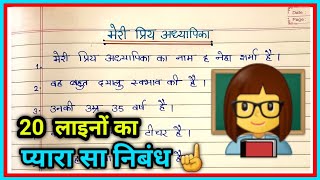 Date
Page
मेरी प्रिय अध्यापिका
1. मेरी प्रिय अध्यापिका का नाम ह नेहा शर्मा है।
2. वह बहुत दयालु स्वभाव की है।
3. उनकी उम्र 35 वर्ष है।
टीचर है।
20 लाइनों का
प्यारा सा निबंध